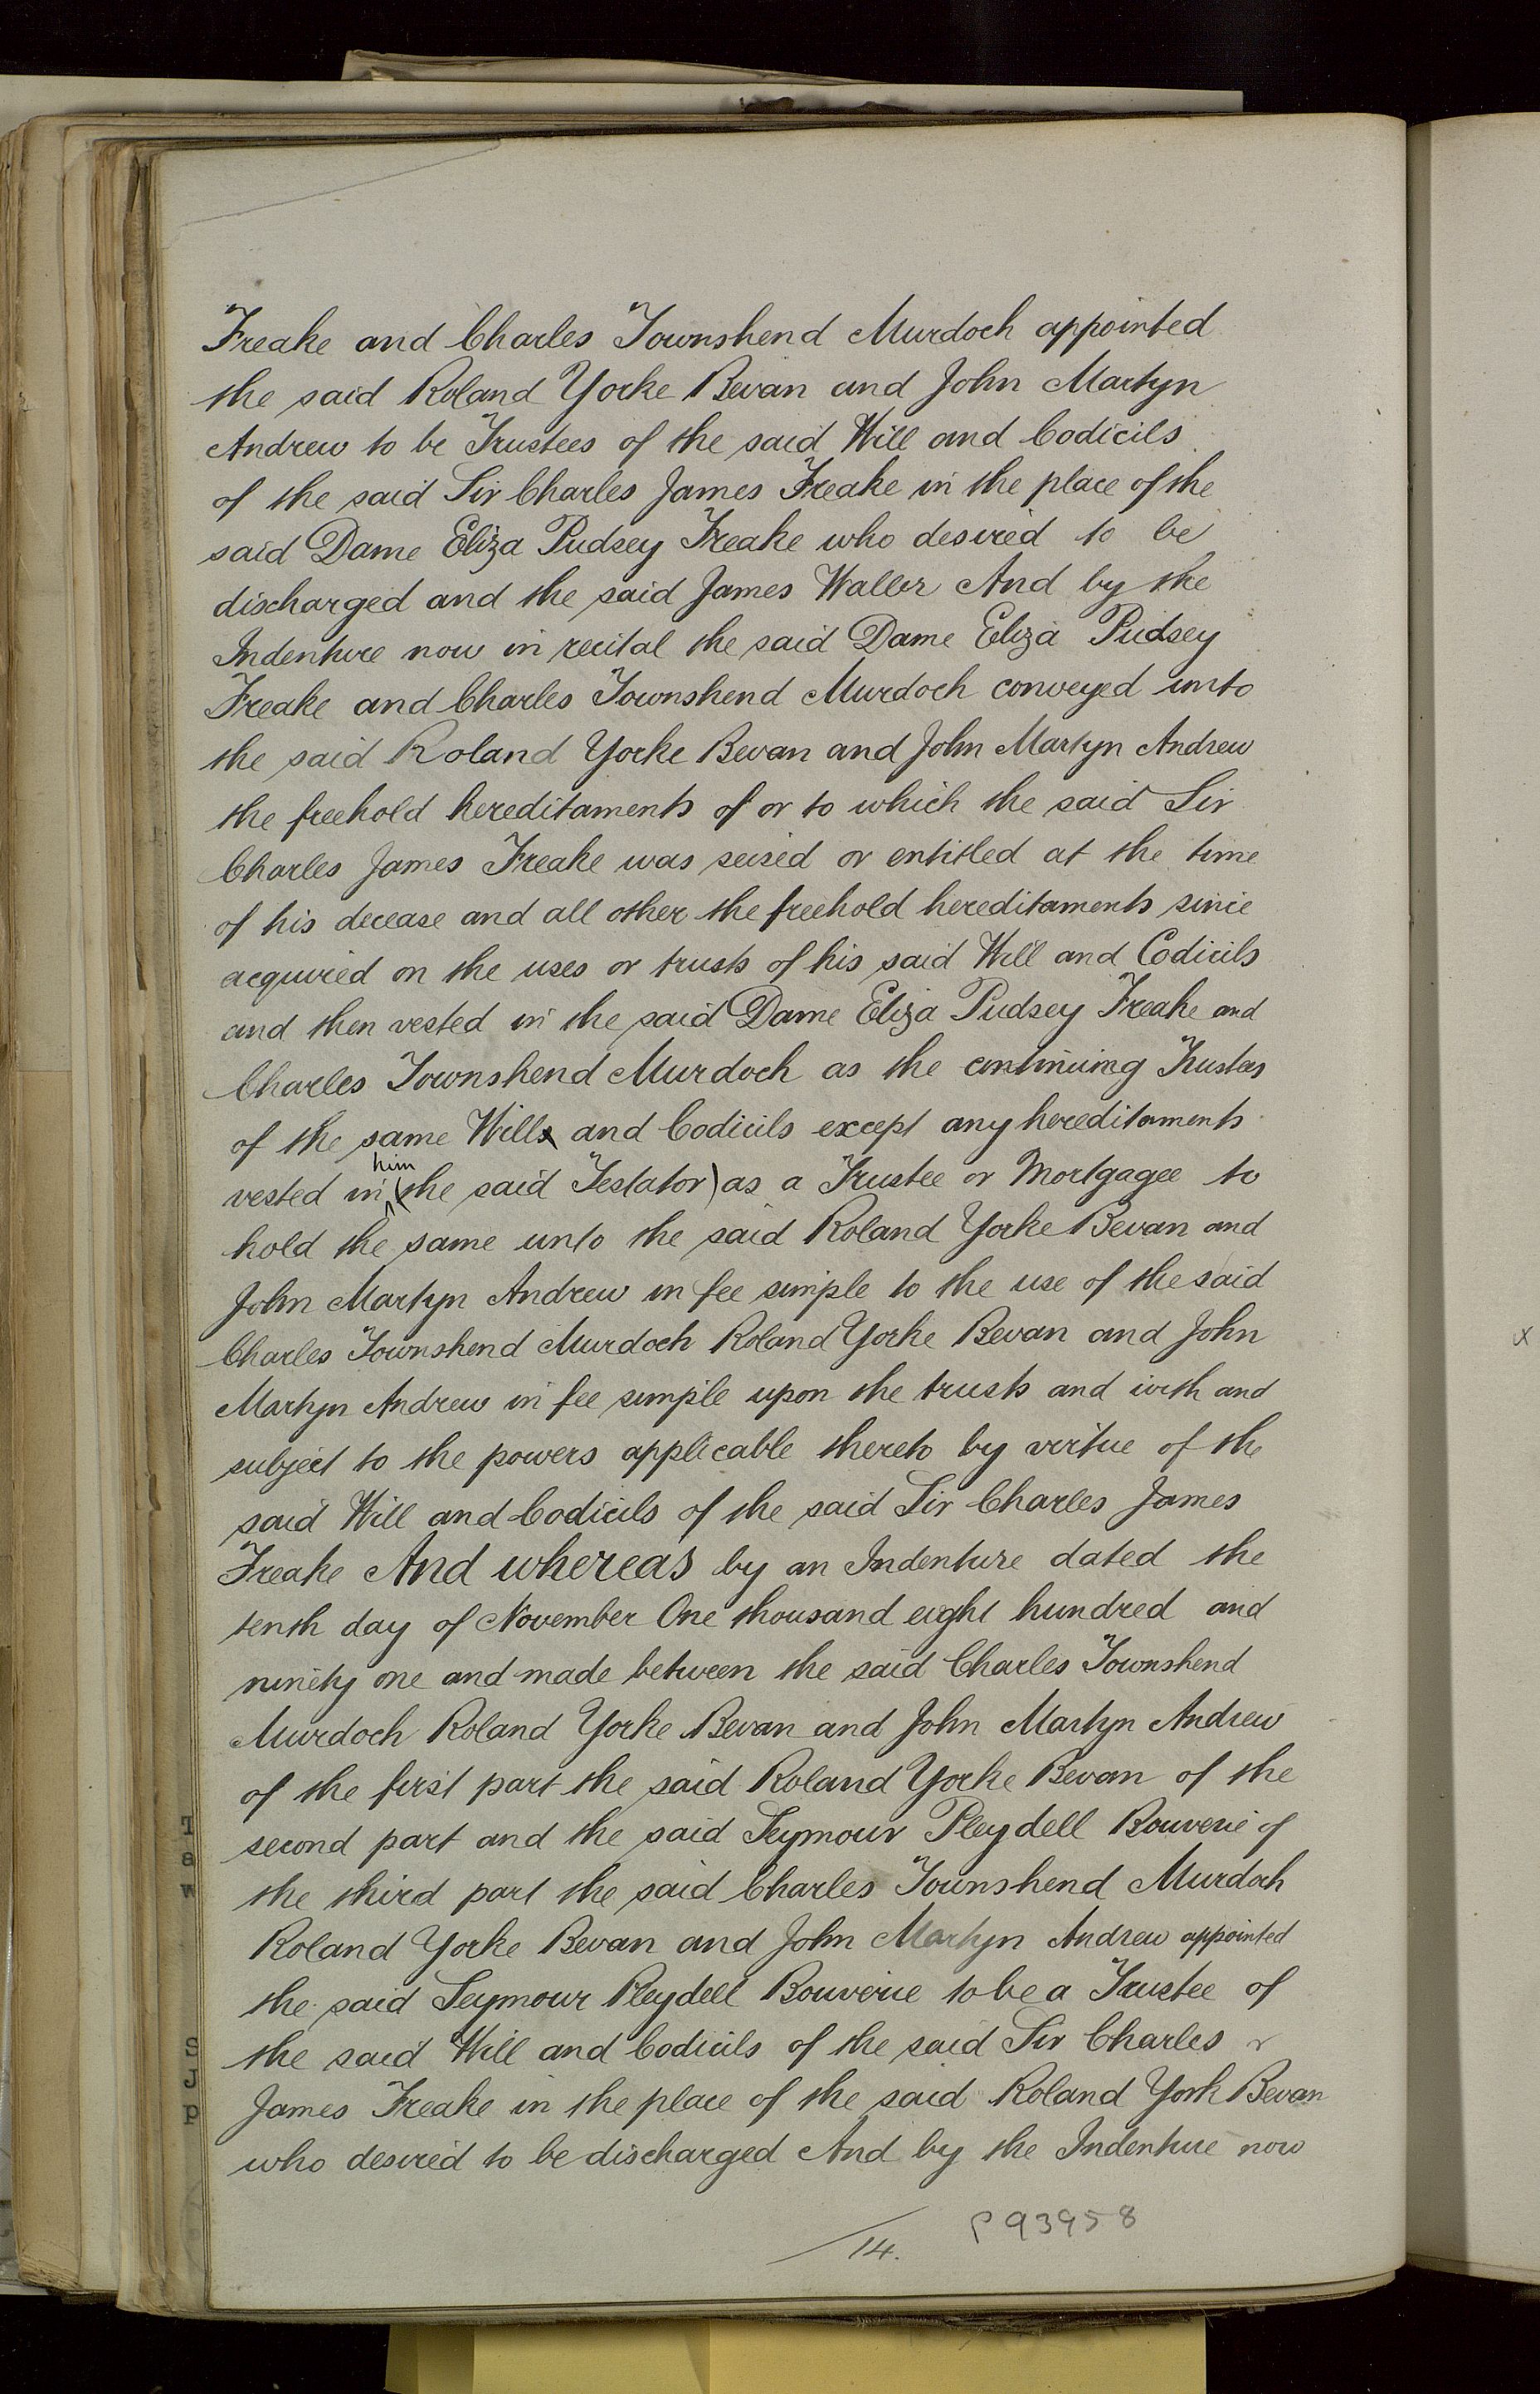 Freake and Charles Townshend Murdoch appointed
the said Roland Yorke Bevan and John Martyn
Andrew to be Trustees of the said Will and Codicils
of the said Sir Charles James Freake in the place of the
said Dame Eliza Pudsey Freake who desired to be
discharged and the said James Waller And by the
Indenture now in recital the said Dame Eliza Pudsey
Freake and Charles Townshend Murdoch conveyed unto
the said Roland Yorke Bevan and John Martyn Andrew
the freehold hereditaments of or to which the said Sir
Charles James Freake was seised or entitled at the time
of his decease and all other the freehold hereditaments since
acquired on the uses or trusts of his said Will and Codicils
and then vested in the said Dame Eliza Pudsey Freake and
Charles Townshend Murdoch as the continuing Trustees
of the same Will and Codicils except any hereditaments
vested in him (the said Testator) as a Trustee or Mortgagee to
hold the same unto the said Roland Yorke Bevan and
John Martyn Andrew in fee simple to the use of the said
Charles Townshend Murdoch Roland Yorke Bevan and John
Martyn Andrew in fee simple upon the trusts and with and
subject to the powers applicable thereto by virtue of the
said Will and Codicils of the said Sir Charles James
Freake And whereas by an Indenture dated the
tenth day of November One thousand eight hundred and
ninety one and made between the said Charles Townshend
Murdoch Roland Yorke Bevan and John Martyn Andrew
of the first part the said Roland Yorke Bevan of the
second part and the said Seymour Pleydell Bouverie of
the third part the said Charles Townshend Murdoch
Roland Yorke Bevan and John Martyn Andrew appointed
the said Seymour Pleydell Bouverie to be a Trustee of
the said Will and Codicils of the said Sir Charles
James Freake in the place of the said Roland York Bevan
who desired to be discharged And by the Indenture now
14. P93958